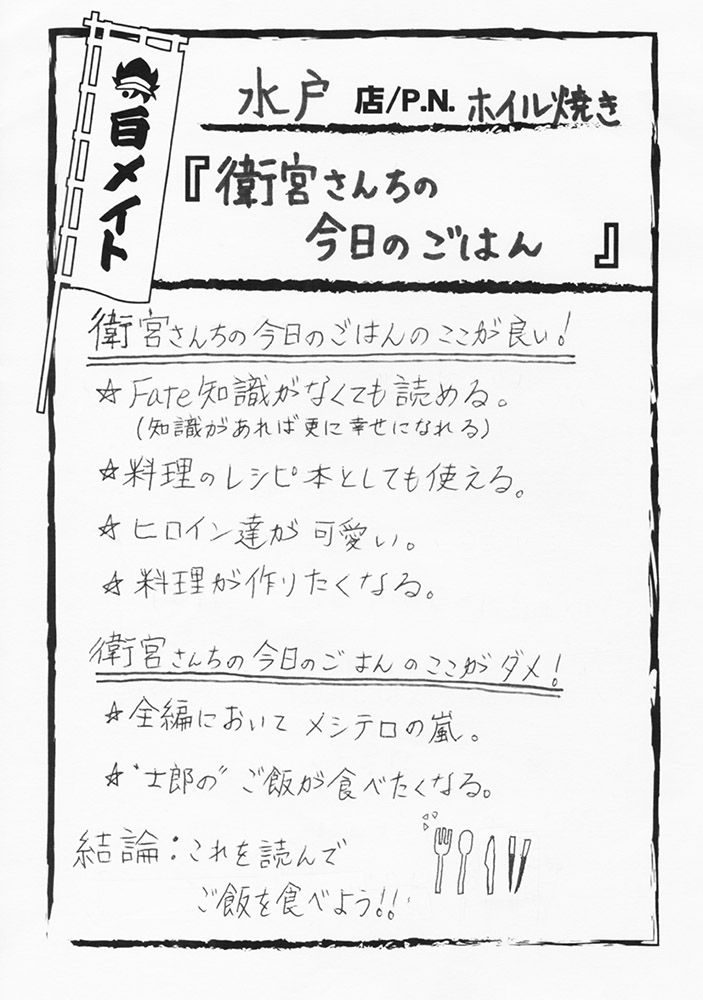 白メイト
水戸 店/P.N. ホイル焼き
『衛宮さんちの
今日のごはん 』
衛宮さんちの今日のごはんのここが良い!
☆Fate知識がなくても読める。
(知識があれば更に幸せになれる)
☆料理のレシピ本としても使える。
☆ヒロイン達が可愛い。
☆料理が作りたくなる。
衛宮さんちの今日のごはんのここがダメ!
☆全編においてメシテロの嵐。
☆"士郎の"ご飯が食べたくなる。
結論:これを読んで
ご飯を食べよう!!